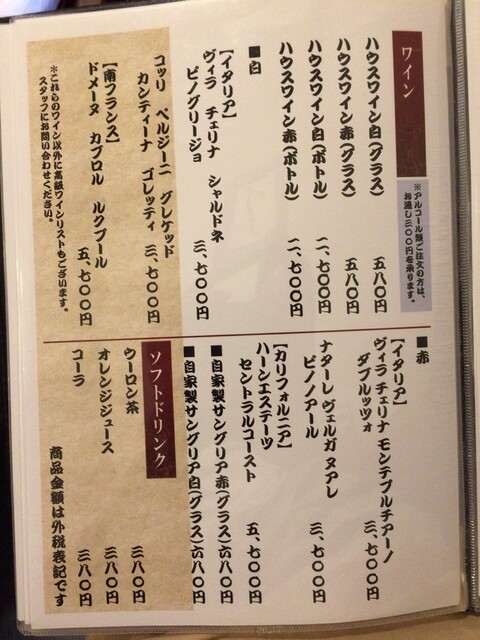 ワイン
※アルコール類ご注文の方は、
お通し三〇〇円を承ります。
ハウスワイン白（グラス） 五八〇円
ハウスワイン赤（グラス） 五八〇円
ハウスワイン白（ボトル） 二、七〇〇円
ハウスワイン赤（ボトル） 二、七〇〇円
■白
【イタリア】
ヴィラ チェリナ シャルドネ
ピノグリージョ 三、七〇〇円
コッリ ペルジーニ グレケット
カンティーナ ゴレッティ 三、七〇〇円
【南フランス】
ドメーヌ カブロル ルクプール
五、七〇〇円
※これらのワイン以外に高級ワインリストもございます。
スタッフにお問い合わせください。
■赤
【イタリア】
ヴィラ チェリナ モンテプルチアーノ
ダブルッツォ 三、七〇〇円
ナターレ ヴェルガ ヌアレ
ピノノアール 三、七〇〇円
【カリフォルニア】
ハーンエステーツ
セントラルコースト 五、七〇〇円
■自家製サングリア赤（グラス）六八〇円
■自家製サングリア白（グラス）六八〇円
ソフトドリンク
ウーロン茶 三八〇円
オレンジジュース 三八〇円
コーラ 三八〇円
商品金額は外税表記です